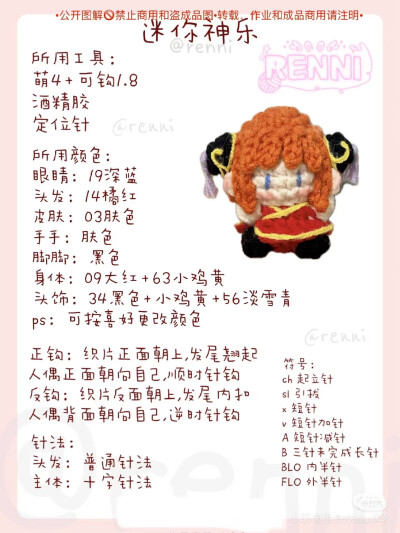 •公开图解🚫禁止商用和盗成品图•转载，作业和成品商用请注明•
迷你神乐
@renni
RENNI
所用工具：
萌4+可钩1.8
酒精胶
定位针
@renni
所用颜色：
眼睛：19深蓝
头发：14橘红
皮肤：03肤色
手手：肤色
脚脚：黑色
身体：09大红+63小鸡黄
头饰：34黑色+小鸡黄+56淡雪青
ps：可按喜好更改颜色
@renni
正钩：织片正面朝上,发尾翘起
人偶正面朝向自己,顺时针钩
反钩：织片反面朝上,发尾内扣
人偶背面朝向自己,逆时针钩
针法：
头发：普通针法
主体：十字针法
符号：
ch 起立针
sl 引拔
x 短针
v 短针加针
A 短针减针
B 三针未完成长针
BLO 内半针
FLO 外半针
@renni